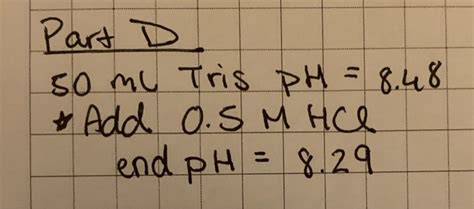 Part D
50 mL Tris pH = 8.48
* Add 0.5 M HCl
end pH = 8.29